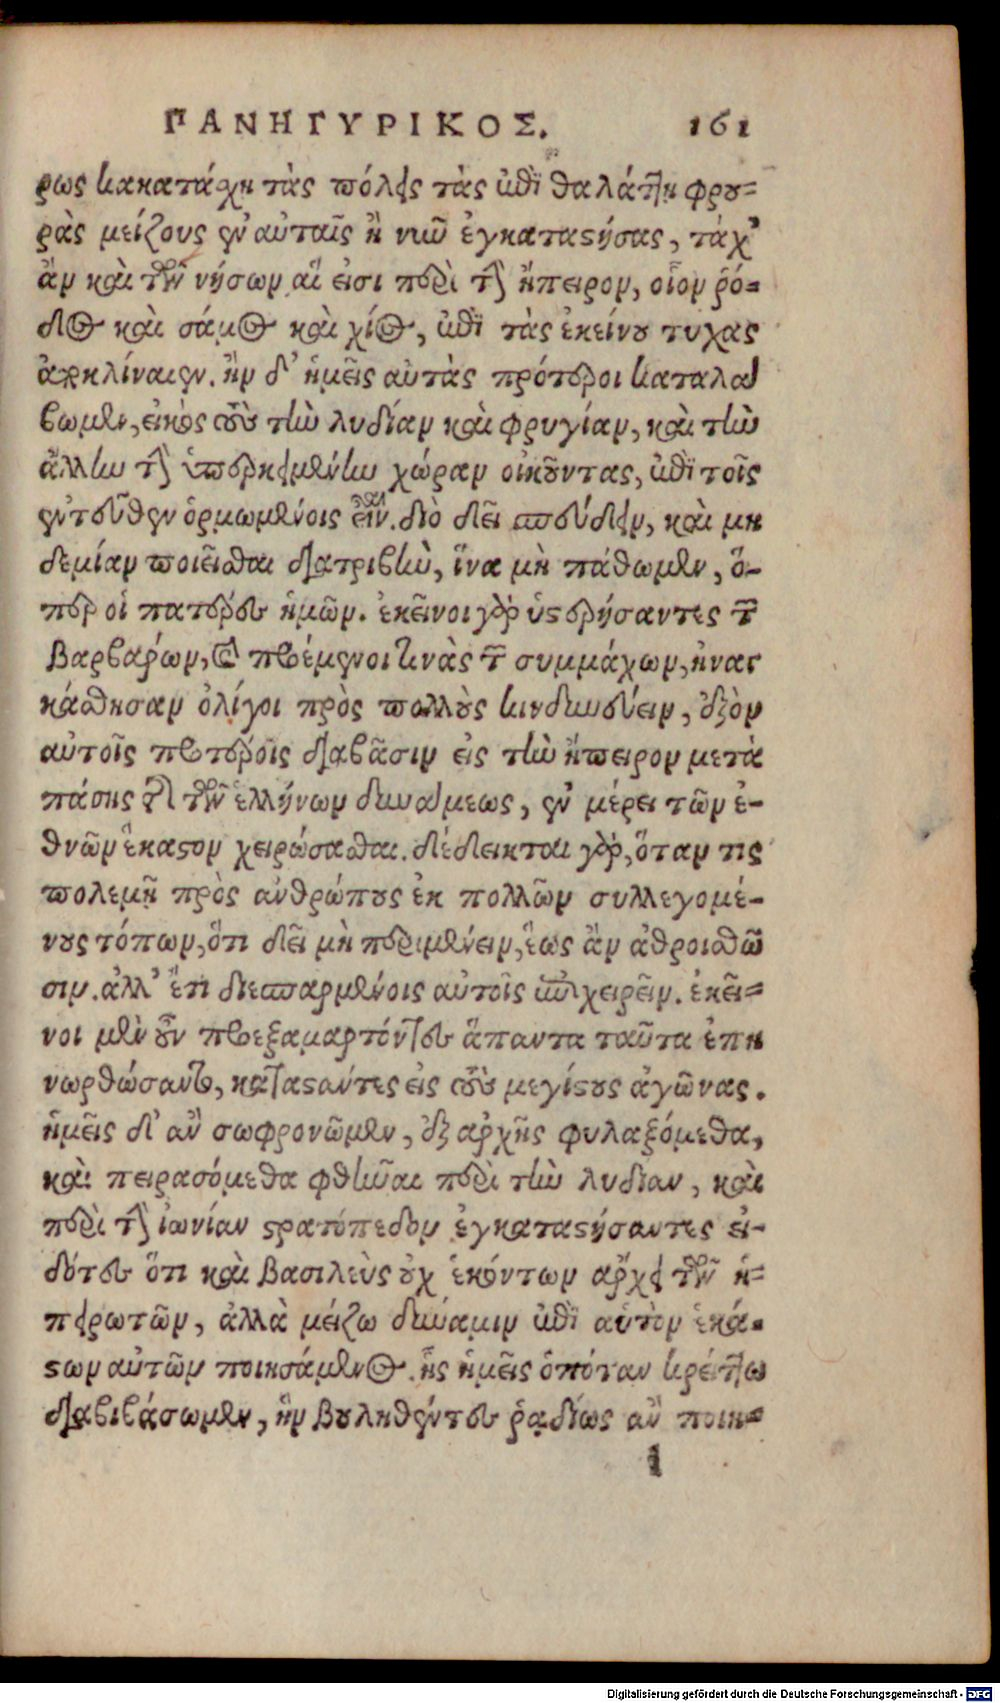 ΠΑΝΗΓΥΡΙΚΟΣ. 161
ρως κακατάχῃ τὰς πόλεις τὰς ἐπὶ θαλάττῃ φρου-
ρὰς μείζους ἐν αὐταῖς ἢ νῦν ἐγκαταστήσας, τάχ’
ἂν καὶ τῶν νήσων αἵ εἰσι περὶ τὴν ἤπειρον, οἷον ῥό-
δος καὶ σάμος καὶ χίος, ἐπὶ τὰς ἐκείνου τυχας
ἀποκλίναιεν. ἢν δ’ ἡμεῖς αὐτὰς πρότεροι καταλά
βωμεν, εἰκὸς τοὺς τὴν λυδίαν καὶ φρυγίαν, καὶ τὴν
ἄλλην τὴν ὑπερκειμένην χώραν οἰκοῦντας, ἐπὶ τοῖς
ἐντεῦθεν ὁρμωμένοις εἶναι. διὸ δεῖ σπεύδειν, καὶ μη
δεμίαν ποιεῖσθαι διατριβὴν, ἵνα μὴ πάθωμεν, ὅ-
περ οἱ πατέρες ἡμῶν. ἐκεῖνοι γὰρ ὑστερήσαντες τῶν
βαρβάρων, καὶ προέμενοι τινὰς τῶν συμμάχων, ἠναγ
κάσθησαν ὀλίγοι πρὸς πολλοὺς κινδυνεύειν, ἐξὸν
αὐτοῖς προτέροις διαβᾶσιν εἰς τὴν ἤπειρον μετὰ
πάσης τῆς τῶν ἑλλήνων δυνάμεως, ἐν μέρει τῶν ἐ-
θνῶν ἕκαστον χειρώσασθαι. δέδεικται γὰρ, ὅταν τις
πολεμῇ πρὸς ἀνθρώπους ἐκ πολλῶν συλλεγομέ-
νους τόπων, ὅτι δεῖ μὴ περιμένειν, ἕως ἂν ἀθροισθῶ
σιν. ἀλλ’ ἔτι διεσπαρμένοις αὐτοῖς ἐπιχειρεῖν. ἐκεῖ-
νοι μὲν οὖν προεξαμαρτόντες ἅπαντα ταῦτα ἐπη
νωρθώσαντο, καταστάντες εἰς τοὺς μεγίστους ἀγῶνας.
ἡμεῖς δ’ ἂν σωφρονῶμεν, ἐξ ἀρχῆς φυλαξόμεθα,
καὶ πειρασόμεθα φθῆναι περὶ τὴν λυδίαν, καὶ
περὶ τὴν ἰωνίαν στρατόπεδον ἐγκαταστήσαντες εἰ-
δότες ὅτι καὶ βασιλεὺς οὐχ ἑκόντων ἄρχει τῶν ἠ-
πειρωτῶν, ἀλλὰ μείζω δύναμιν ἐπὶ αὑτὸν ἑκά-
στων αὐτῶν ποιησάμενος. ἧς ἡμεῖς ὁπόταν κρείττω
διαβιβάσωμεν, ἢν βουληθέντες ῥᾳδίως ἂν ποιη-
l
Digitalisierung gefördert durch die Deutsche Forschungsgemeinschaft - DFG